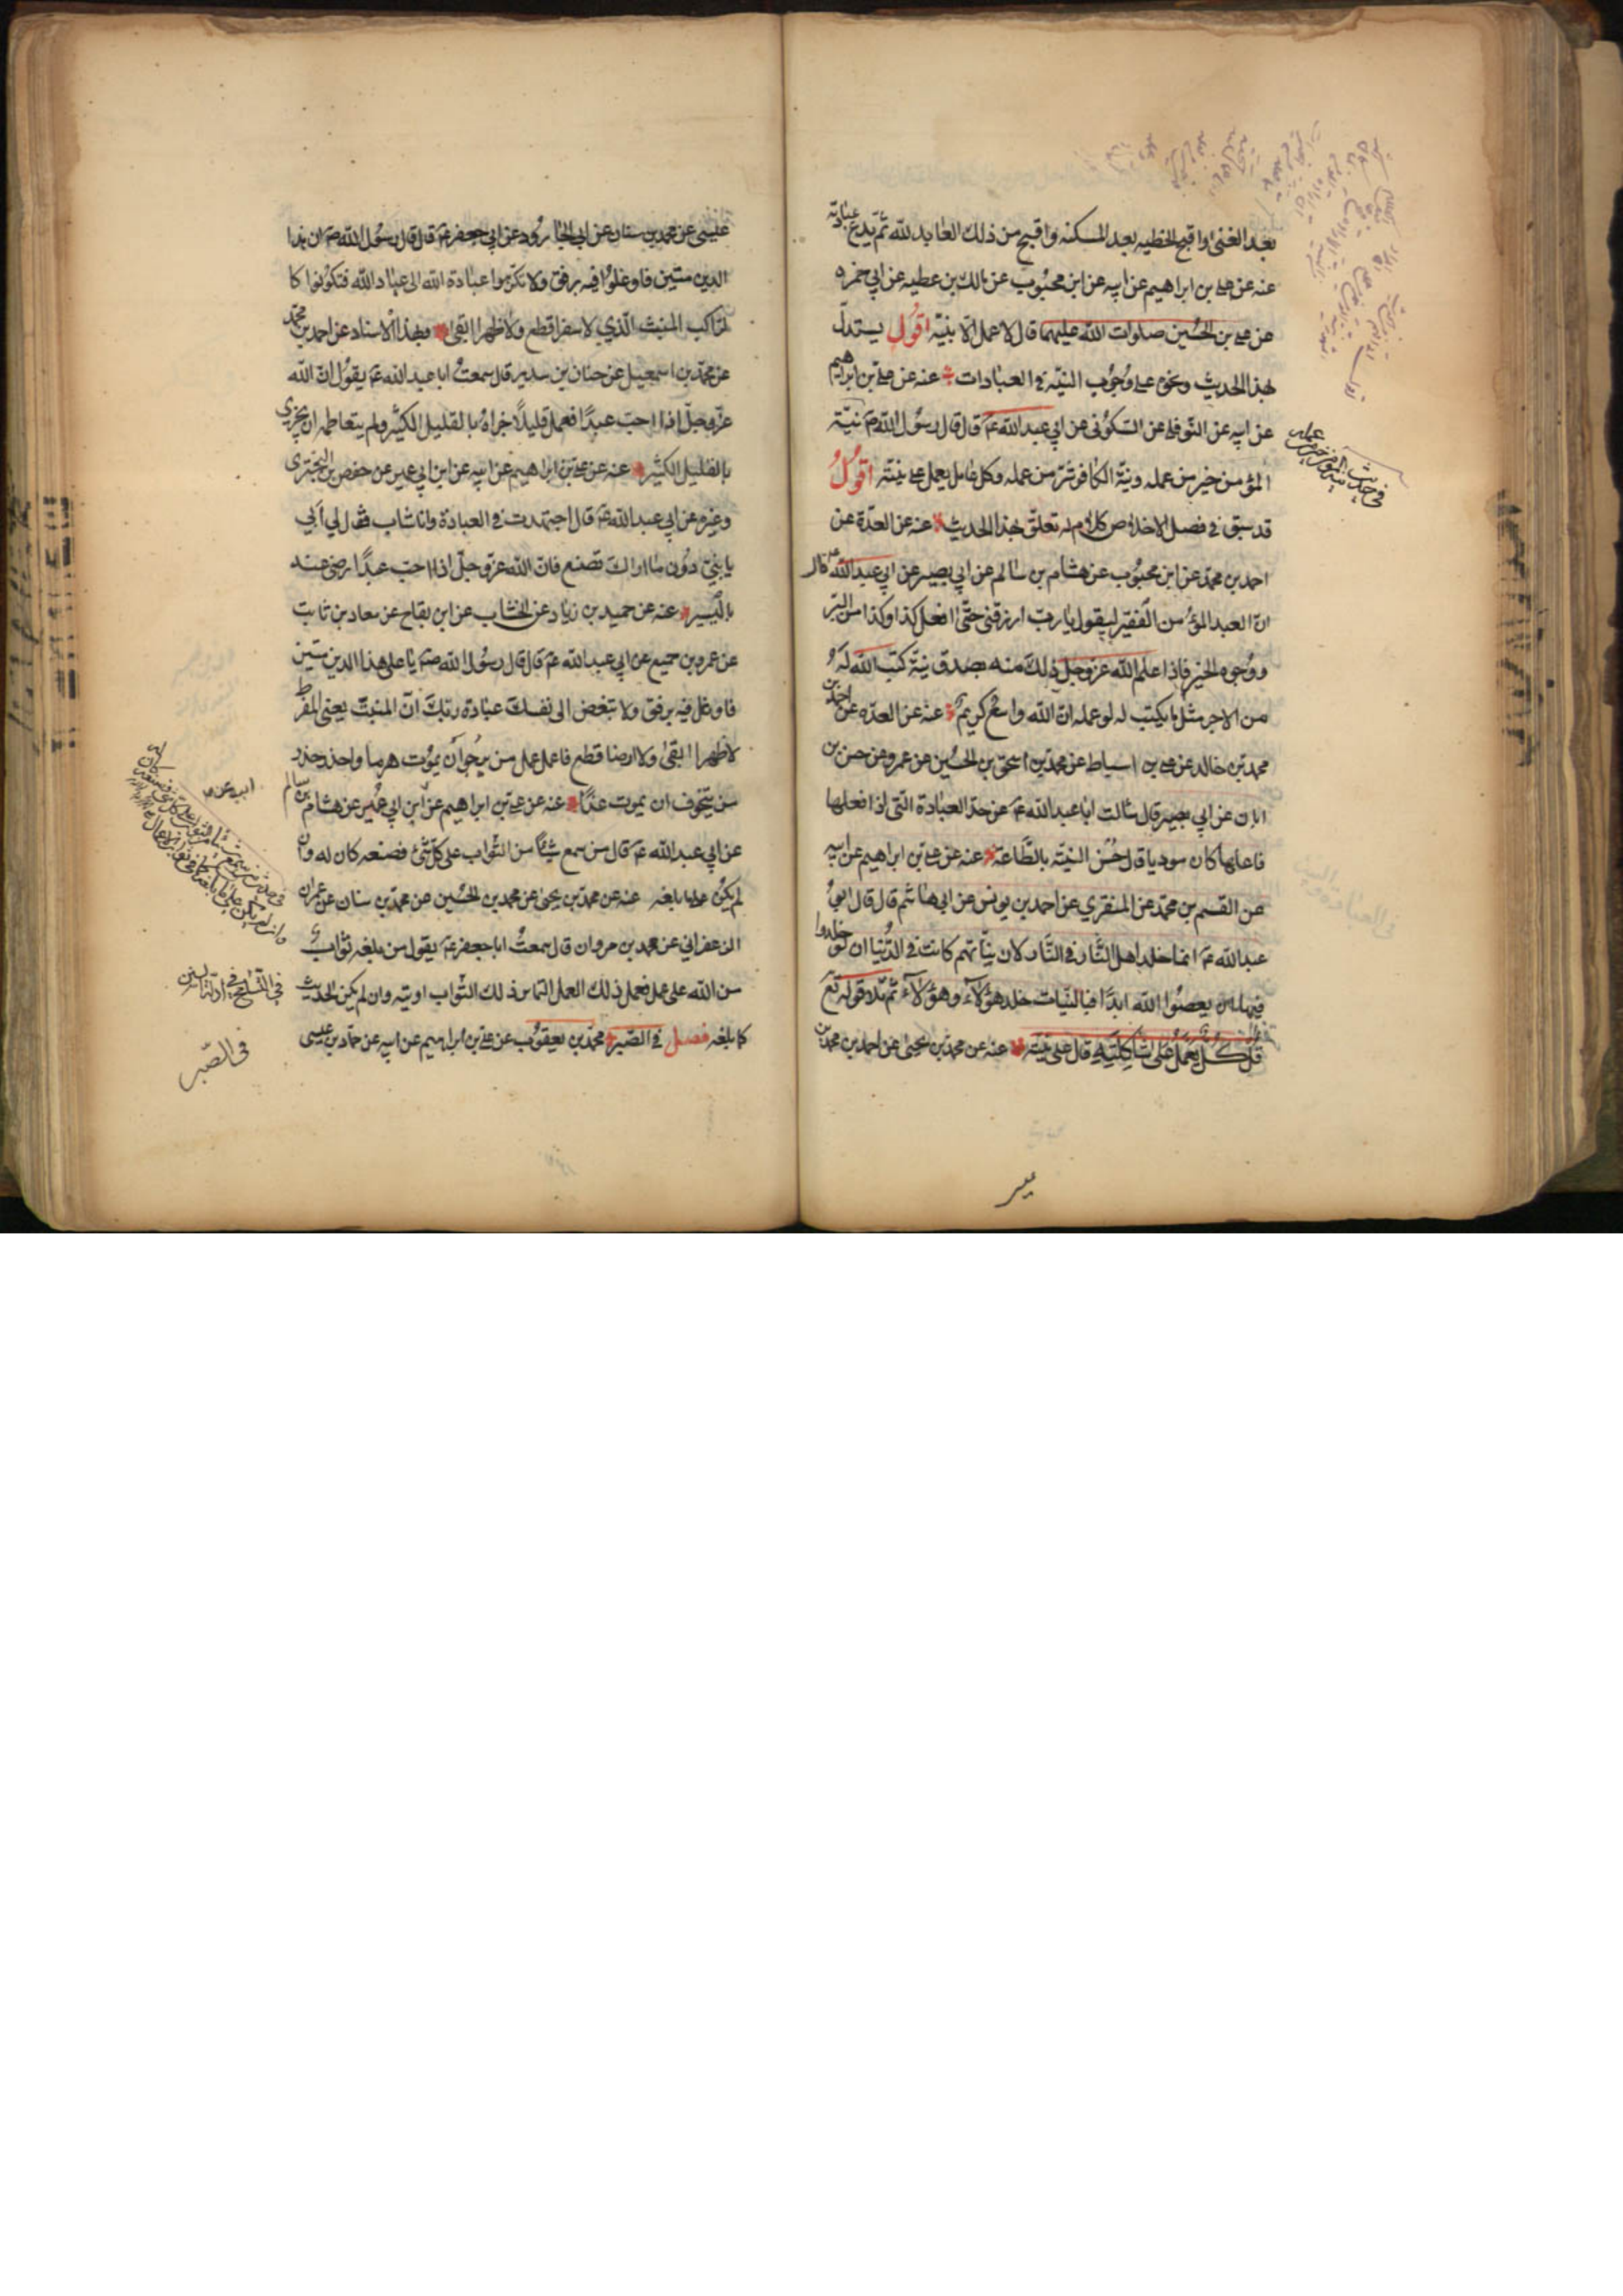 بعد الغنى واقبح الخطيه بعد المسكنه واقبح من ذلك العابد لله ثم يدع عبادته
عنه عن علي بن ابراهيم عن ابيه عن ابن محبوب عن مالك بن عطيه عن ابي حمزه
عن علي بن الحسين صلوات الله عليهما قال لا عمل الا بنيّة اقول يستدلّ
بهذا الحديث ونحوه على وجوب النيّة في العبادات عنه عن علي بن ابراهيم
عن ابيه عن النوفلي عن السكوني عن ابي عبد الله عم قال قال رسول الله صم نيّة
المؤمن خير من عمله ونيّة الكافر شرّ من عمله وكل عامل يعمل على نيته اقول
قد سبق في فصل الاخلاص كلام له تعلّق بهذا الحديث عنه عن العدّة عن
احمد بن محمد عن ابن محبوب عن هشام بن سالم عن ابي بصير عن ابي عبد الله عم قال
انّ العبد المؤمن الفقير ليقول يا ربّ ارزقني حتّى افعل كذا وكذا من البرّ
ووجوه الخير فاذا علم الله عز وجل ذلك منه بصدق نيّة كتب الله له
من الاجر مثل ما يكتب له لو عمله انّ الله واسع كريم عنه عن العدّه عن احمد بن
محمد بن خالد عن علي بن اسباط عن محمد بن اسحق بن الحسين عن عمرو عن حسن بن
ابان عن ابي بصير قال سألت ابا عبد الله عم عن حدّ العبادة التي اذا فعلها
فاعلها كان مؤديا قال حُسن النيّة بالطّاعة عنه عن علي بن ابراهيم عن ابيه
عن القسم بن محمد عن المنقري عن احمد بن يونس عن ابي هاشم قال قال ابو
عبد الله عم انما خلد اهل النّار في النّار لان نيّاتهم كانت في الدّنيا ان لو خلدوا
فيها ان يعصوا الله ابدًا فبالنيّات خلد هؤلاء وهؤلاء ثم تلا قوله تع
قل كل يعمل على شاكلته قال على نيته عنه عن محمد بن يحيى عن احمد بن محمد بن
في حديث نية المؤمن خير من عمله
عيسى عن محمد بن سنان عن ابي الجارود عن ابي جعفر عم قال قال رسول الله صم ان هذا
الدين متين فاوغلوا فيه برفق ولا تكرّهوا عبادة الله الى عباد الله فتكونوا كا
لراكب المنبتّ الّذي لا سفرا قطع ولا ظهرا ابقى وبهذا الاسناد عن احمد بن محمد
عن محمد بن اسمعيل عن حنان بن سدير قال سمعتُ ابا عبد الله عم يقول انّ الله
عزّ وجلّ اذا احبّ عبدًا فعمل قليلًا جزاه بالقليل الكثير ولم يتعاظمه ان يجزى
بالقليل الكثير عنه عن علي بن ابراهيم عن ابيه عن ابن ابي عمير عن حفص بن البختري
وغيره عن ابي عبد الله عم قال اجتهدت في العبادة وانا شاب فقال لي ابي
يا بنيّ دون ما اراك تصنع فانّ الله عزّ وجلّ اذا احبّ عبدًا رضى عنه
باليسير عنه عن حميد بن زياد عن الخشاب عن ابن بقاح عن معاذ بن ثابت
عن عمرو بن جميع عن ابي عبد الله عم قال قال رسول الله صم يا علي هذا الدين متين
فاوغل فيه برفق ولا تبغض الى نفسك عبادة ربّك انّ المنبتّ يعنى المفرط
لا ظهرا ابقى ولا ارضا قطع فاعمل عمل من يرجو ان يموت هرما واحذر حذر
من يتخوف ان يموت غدًا عنه عن علي بن ابراهيم عن ابن ابي عمير عن هشام بن سالم
عن ابي عبد الله عم قال من سمع شيئًا من الثواب على كل شئ فصنعه كان له وان
لم يكن على ما بلغه عنه عن محمد بن يحيى عن محمد بن الحسين عن محمد بن سنان عن عمران
الزعفراني عن محمد بن مروان قال سمعتُ ابا جعفر عم يقول من بلغه ثواب
من الله على عمل فعمل ذلك العمل التماس ذلك الثواب اوتيه وان لم يكن الحديث
كما بلغه فصل في الصّبر محمد بن يعقوب عن علي بن ابراهيم عن ابيه عن حماد بن عيسى
ابيه عن
في التسامح في ادلة السنن
في الصّبر